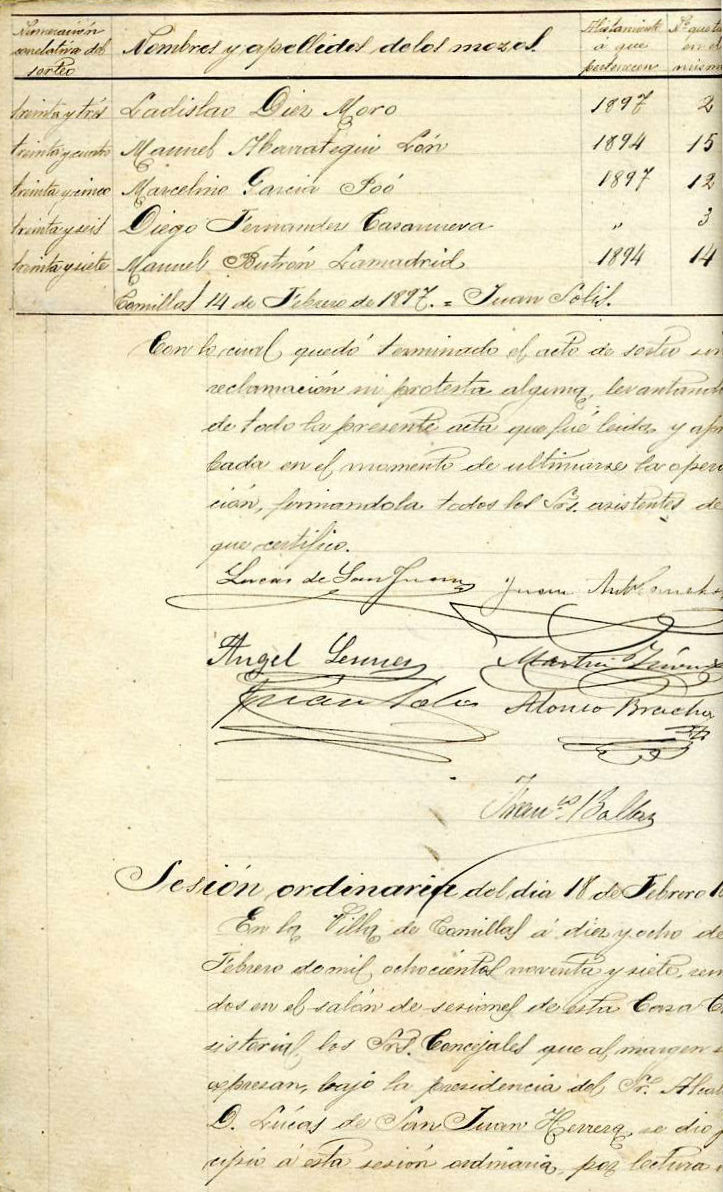 Numeración correlativa del sorteo | Nombres y apellidos de los mozos. | Alistamiento á que pertenecen | Nº que
treinta y trés | Ladislao Diez Moro | 1897 | 2
treinta y cuatro | Manuel | 1894 | 15
treinta y cinco | Marcelino Garcia Poó | 1897 | 12
treinta y seis | Diego Fernandez Casanueva | " | 3
treinta y siete | Manuel Butrón Lamadrid | 1894 | 14
Comillas 14 de Febrero de 1897. = Juan Solis.
Con lo cual quedó terminado el acto de sorteo sin
reclamación ni protesta alguna, levantand
de todo la presente acta que fué leida y apro
bada en el momento de ultimarse la opera
ción, firmandola todos los Srs. asistentes de
que certifico.
Lucas de San Juan Juan
Angel Martin
Juan Solis Alonso Bracho
Franco. Balbas
Sesión ordinaria del dia 18 de Febrero 18
En la Villa de Comillas á diez y ocho de
Febrero de mil ochocientos noventa y siete, reun
dos en el salón de sesiones de esta Casa Co
sistorial, los Srs. Concejales que al margen se
expresan, bajo la presidencia del Sr. Alcal
D. Lúcas de San Juan Herrera, se dio p
cipio á esta sesión ordinaria, por lectura